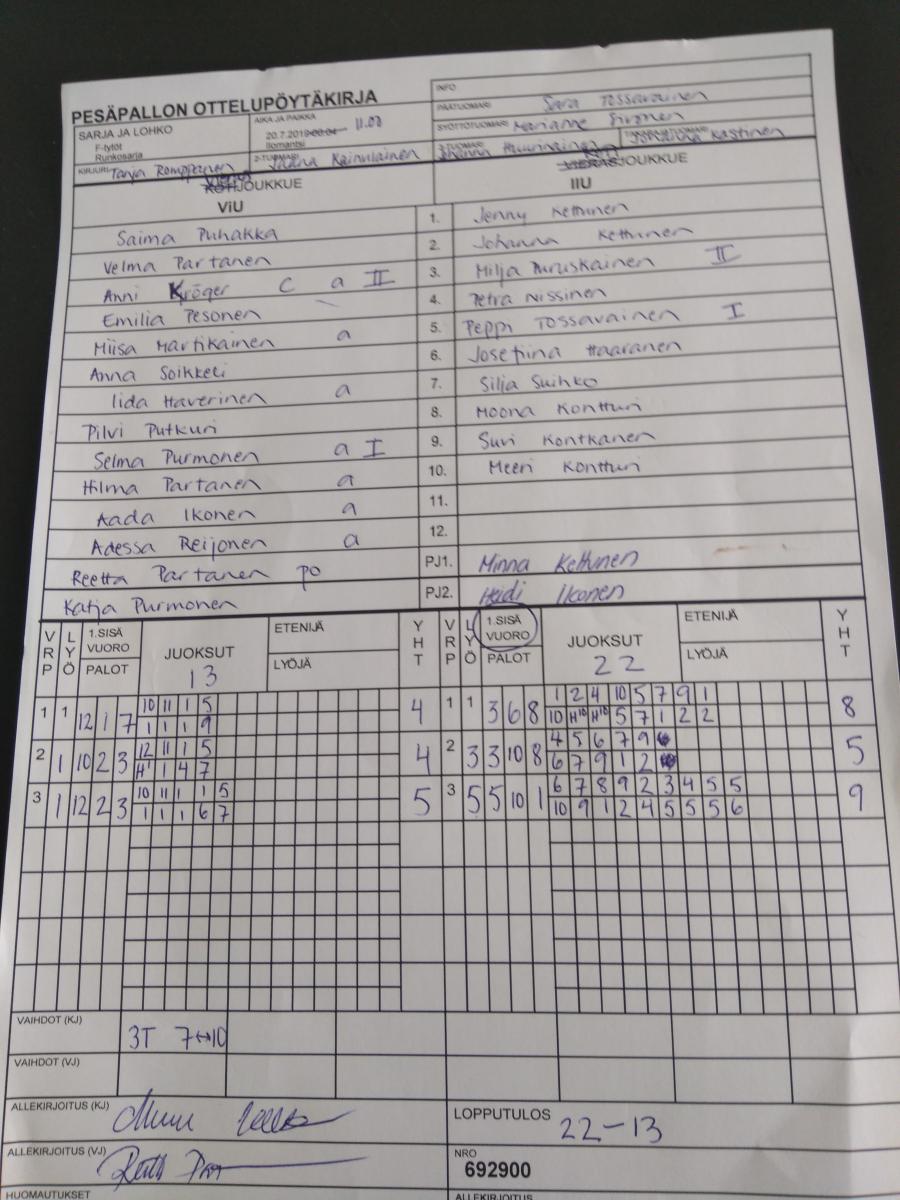 PESÄPALLON OTTELUPÖYTÄKIRJA
INFO
SARJA JA LOHKO
F-tytöt
Runkosarja
AIKA JA PAIKKA
20.7.2019 11.00
Ilomantsi
PÄÄTUOMARI Sara Tossavainen
SYÖTTÖTUOMARI Marianne Sironen
KIRJURI Tanja Romppanen
2-TUOMARI Jaana Kainulainen
3-TUOMARI Kastinen
Vieras
KOTIJOUKKUE
ViU
Koti
VIERASJOUKKUE
IIU
Saima Puhakka 1. Jenny Kettunen
Velma Partanen 2. Johanna Kettunen
Anni Kröger C a II 3. Milja Puruskainen II
Emilia Pesonen 4. Petra Nissinen
Miisa Martikainen a 5. Peppi Tossavainen I
Anna Soikkeli 6. Josefiina Haaranen
Iida Haverinen a 7. Silja Suihko
Pilvi Putkuri 8. Moona Kontturi
Selma Purmonen a I 9. Suvi Kontkanen
Hilma Partanen a 10. Meeri Kontturi
Aada Ikonen a 11.
Adessa Reijonen a 12.
Reetta Partanen po PJ1. Minna Kettunen
Katja Purmonen PJ2. Heidi Ikonen
VRP LYÖ 1.SISÄ VUORO PALOT JUOKSUT 13 ETENIJÄ LYÖJÄ YHT VRP LYÖ 1.SISÄ VUORO PALOT JUOKSUT 22 ETENIJÄ LYÖJÄ YHT
1 1 12 1 7 10 11 1 5 4 1 1 3 6 8 1 2 4 10 5 7 9 1 8
1 1 1 9 10 H10 H10 5 7 1 2 2
2 1 10 2 3 12 11 1 5 4 2 3 3 10 8 4 5 6 7 9 5
H1 1 4 7 6 7 9 1 2
3 1 12 2 3 10 11 1 1 5 5 3 5 5 10 1 6 7 8 9 2 3 4 5 5 9
1 1 1 6 7 10 9 1 2 4 5 5 5 6
VAIHDOT (KJ) 3T 7↔10
VAIHDOT (VJ)
ALLEKIRJOITUS (KJ)
LOPPUTULOS 22-13
ALLEKIRJOITUS (VJ)
NRO
692900
HUOMAUTUKSET
ALLEKIRJOITUS